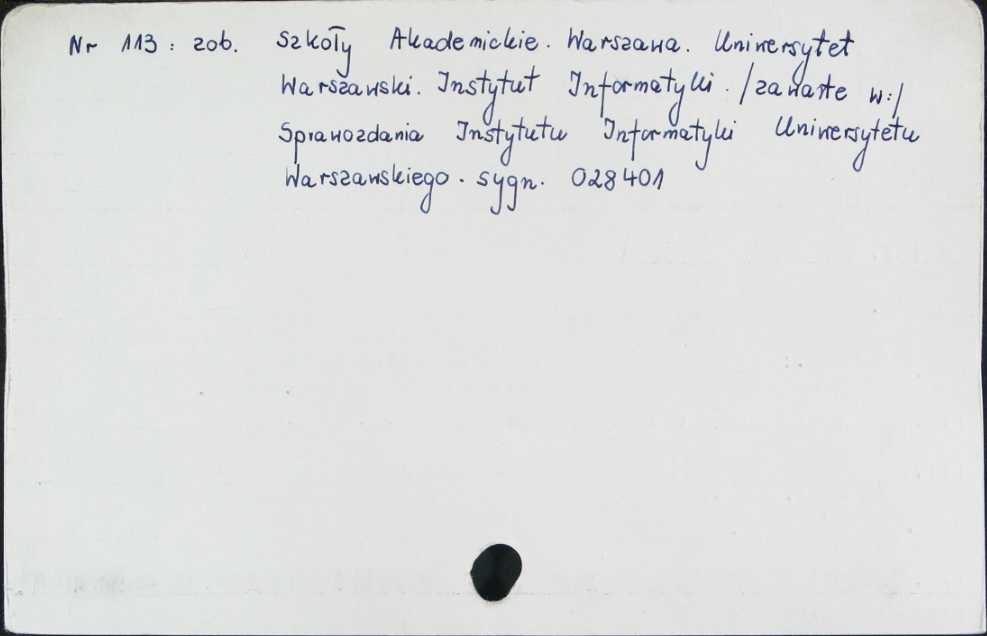 Nr 113 : zob. Szkoły Akademickie. Warszawa. Uniwersytet
Warszawski. Instytut Informatyki. /zawarte w:/
Sprawozdania Instytutu Informatyki Uniwersytetu
Warszawskiego. sygn. 028401